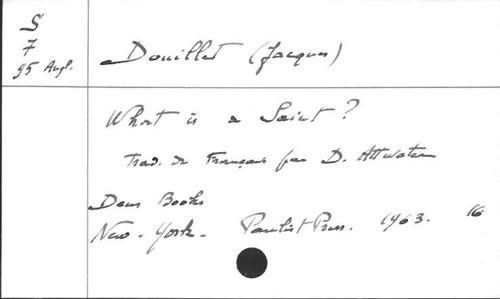 S
7
95 Angl.
Douillet (Jacques)
What is a Saint?
Trad. du Français par D. Attwater
Deus Books
New-York - Paulist Press. 1963. 16